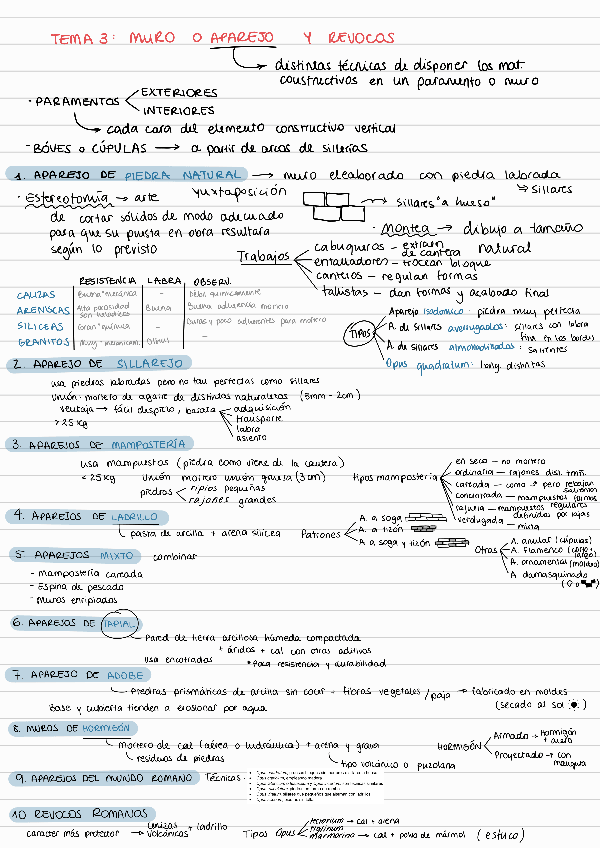 TEMA 3: MURO O APAREJO Y REVOCOS
distintas técnicas de disponer los mat.
constructivos en un paramento o muro
· PARAMENTOS
EXTERIORES
INTERIORES
cada cara del elemento constructivo vertical
- BÓVES o CÚPULAS → a partir de arcos de sillerías
1. APAREJO DE PIEDRA NATURAL → muro eleaborado con piedra labrada
⇒ sillares
· Estereotomía → arte
de cortar sólidos de modo adecuado
para que su puesta en obra resultara
según lo previsto
yuxtaposición
sillares "a hueso"
· Montea → dibujo a tamaño
natural
Trabajos
cabuqueros - extraen
de cantera
entalladores - trocean bloque
canteros - regulan formas
tallistas - dan formas y acabado final
RESISTENCIA LABRA OBSERV.
CALIZAS Buena mecánica - Débil químicamente
ARENISCAS Alta porosidad Buena Buena adherencia mortero
son heladizas
SILICEAS Gran química - Duras y poco adherentes para mortero
GRANITOS Muy mecánicam. Difícil -
TIPOS
Aparejo isodómico: piedra muy perfecta
A. de sillares avenugados: sillares con labra
fina en los bordes
A. de sillares almohadillados: sillares
salientes
Opus quadratum: long. distintas
2. APAREJO DE SILLAREJO
usa piedras labradas pero no tan perfectas como sillares
unión: mortero de agarre de distintas naturalezas (5mm - 2cm)
ventaja → fácil despiezo, barata
adquisición
transporte
labra
asiento
> 25 kg
3. APAREJOS DE MAMPOSTERÍA
usa mampuestos (piedra como viene de la cantera)
< 25 kg unión mortero unión gruesa (3cm)
piedras
ripios pequeñas
rajones grandes
tipos mampostería
en seco - no mortero
ordinaria - rajones dist. tmñ.
careada - como → pero rebajan
salientes
concertada - mampuestos firmes
rajuela - mampuestos regulares
definidos por lajas
verdugada - mixta
4. APAREJOS DE LADRILLO
pasta de arcilla + arena silícea
Patrones
A. a soga
A. a tizón
A. a soga y tizón
Otros
A. anular (cúpulas)
A. Flamenco (corto + largo)
A. ornamental (moldeo)
A. damasquinado
5. APAREJOS MIXTO combinar
- Mampostería careada
- Espina de pescado
- Muros enripiados
6. APAREJOS DE TAPIAL
Pared de tierra arcillosa húmeda compactada
+ áridos + cal con otros aditivos
usa encofrados * Para resistencia y durabilidad
7. APAREJO DE ADOBE
Piedras prismáticas de arcilla sin cocer - fibras vegetales / paja → fabricado en moldes
(secado al sol ☀)
Base y cubierta tienden a erosionar por agua
8. MUROS DE HORMIGÓN
mortero de cal (aérea o hidráulica) + arena y grava
residuos de piedras
tipo volcánico o puzolana
HORMIGÓN
Armado → Hormigón
+ acero
Proyectado → con
manguera
9. APAREJOS DEL MUNDO ROMANO Técnicas:
10 REVOCOS ROMANOS
carácter más protector →
cenizas
volcánicas
+ ladrillo
Tipos Opus
→ cal + arena
marmorino → cal + polvo de mármol (estuco)